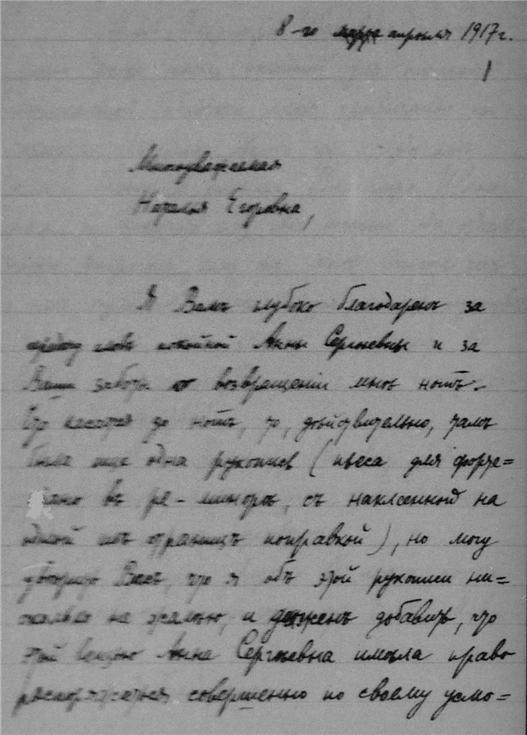 8-го марта апрѣля 1917 г.
1
Многоуважаемая
Наталья Егоровна,
Я Вамъ глубоко благодаренъ за
передачу словъ покойной Анны Сергѣевны и за
Ваши заботы о возвращеніи мнѣ нотъ.
Что касается до нотъ, то, дѣйствительно, тамъ
была еще одна рукопись (пьеса для форте=
пiано въ ре-миноръ, съ наклеенной на
одной изъ страницъ поправкой), но могу
увѣрить Васъ, что я объ этой рукописи ни=
сколько не жалѣю, и долженъ добавить, что
этой вещью Анна Сергѣевна имѣла право
распоряжаться совершенно по своему усмо=